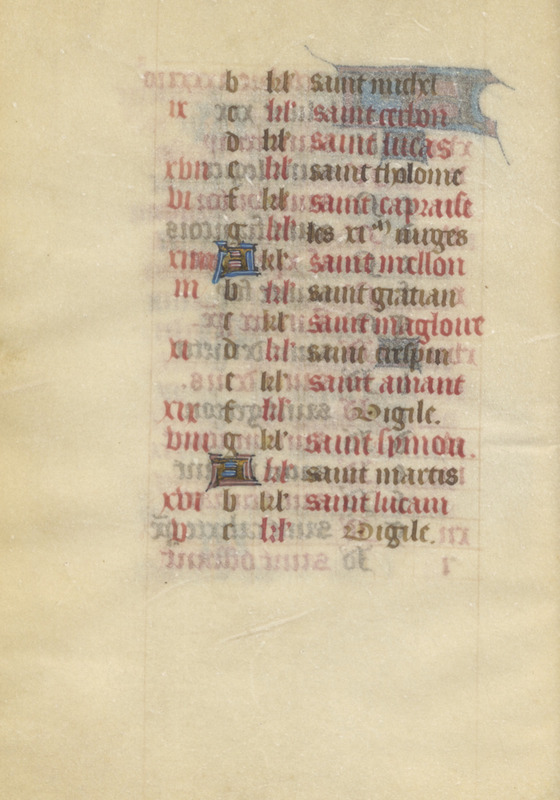 b kl' saint michl
ix c kl' saint cerbon
d kl' saint lucas
xvii e kl' saint tholome
vi f kl' saint capraise
g kl' les xi^m virges
xiiii A kl' saint mellon
iii b kl' saint gratian
c kl' saint magloire
xi d kl' saint crespin
e kl' saint amant
xix f kl' Vigile.
viii g kl' saint symon.
A kl' saint martis
xvi b kl' saint lucain
v c kl' Vigile.